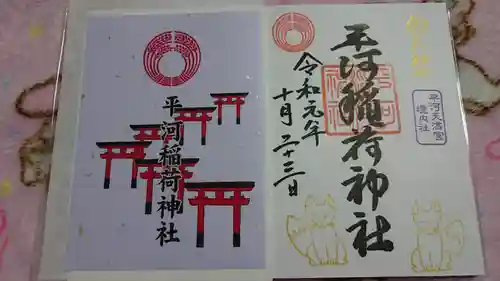 平河稲荷神社
令和元年
十月二十三日
平河稲荷神社
平河天満宮
境内社